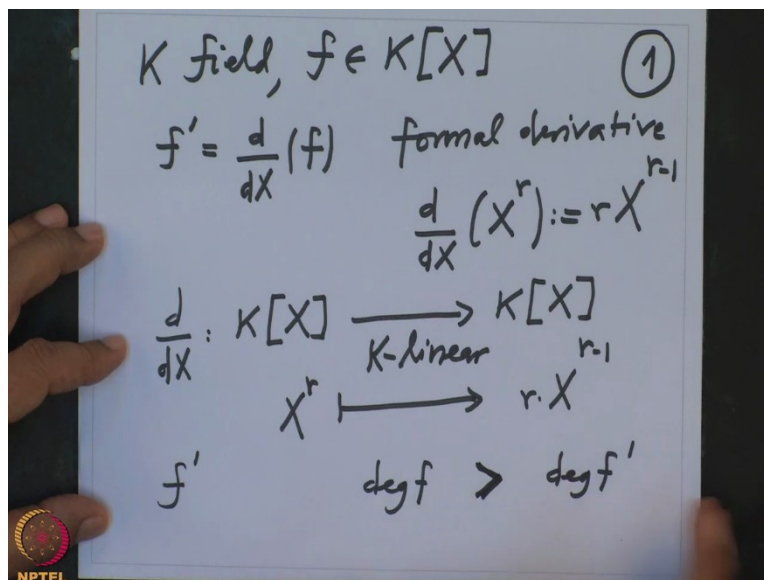 K field, f ∈ K[X] 1
f' = d/dX (f) formal derivative
d/dX (X^r) := r X^{r-1}
d/dX : K[X] ⟶ K[X]
K-linear
X^r ⟼ r. X^{r-1}
f' deg f > deg f'
NPTEL